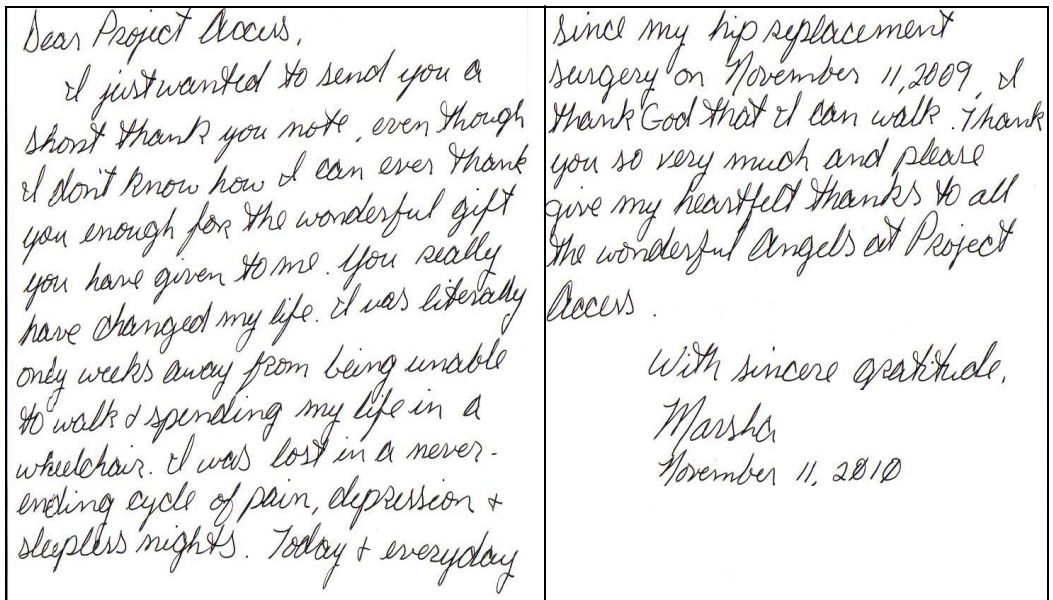 Dear Project Access,
I just wanted to send you a
short thank you note, even though
I don't know how I can ever thank
you enough for the wonderful gift
you have given to me. You really
have changed my life. I was literally
only weeks away from being unable
to walk & spending my life in a
wheelchair. I was lost in a never-
ending cycle of pain, depression &
sleepless nights. Today & everyday
since my hip replacement
surgery on November 11, 2009, I
thank God that I can walk. Thank
you so very much and please
give my heartfelt thanks to all
the wonderful Angels at Project
Access.
With sincere gratitude,
Marsha
November 11, 2010